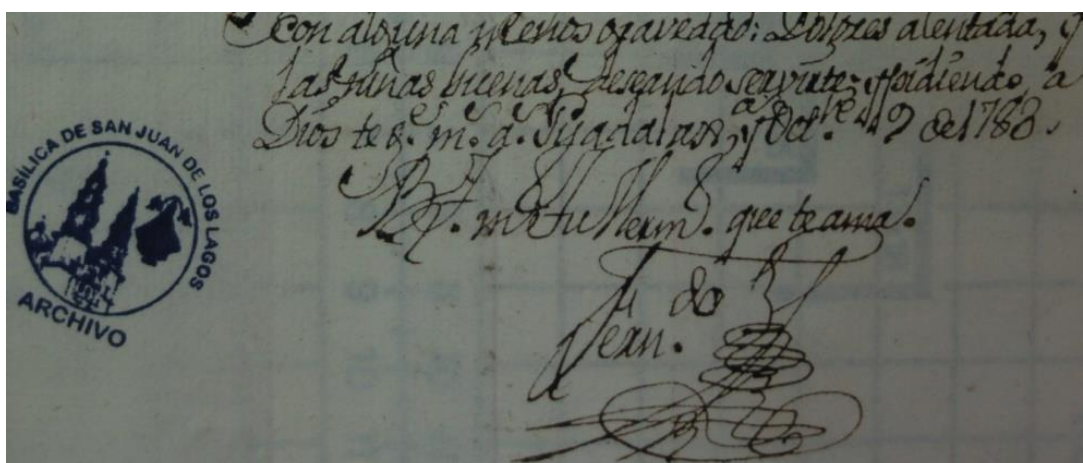 con alguna menos gravedad: Dolores alentada, y
las niñas buenas, deseando servirte; y pidiendo a
Dios te g.e m.s a.s Guadalax.a y Oct.re 9 de 1788.
B. t. m. tu Herm.o que te ama.
Fern.do
BASÍLICA DE SAN JUAN DE LOS LAGOS
ARCHIVO